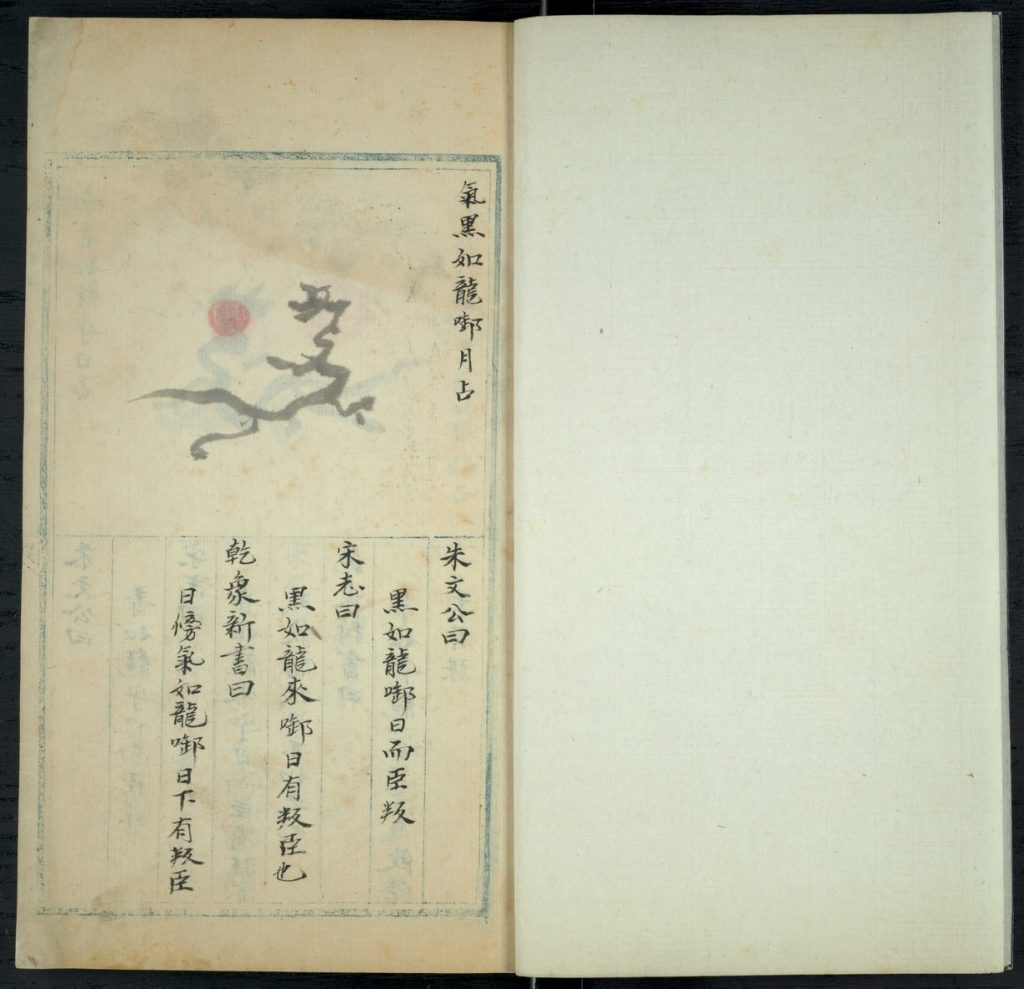 氣黑如龍啣月占
朱文公曰
黑如龍啣日而臣叛
宋志曰
黑如龍來啣日有叛臣也
乾象新書曰
日傍氣如龍啣日下有叛臣